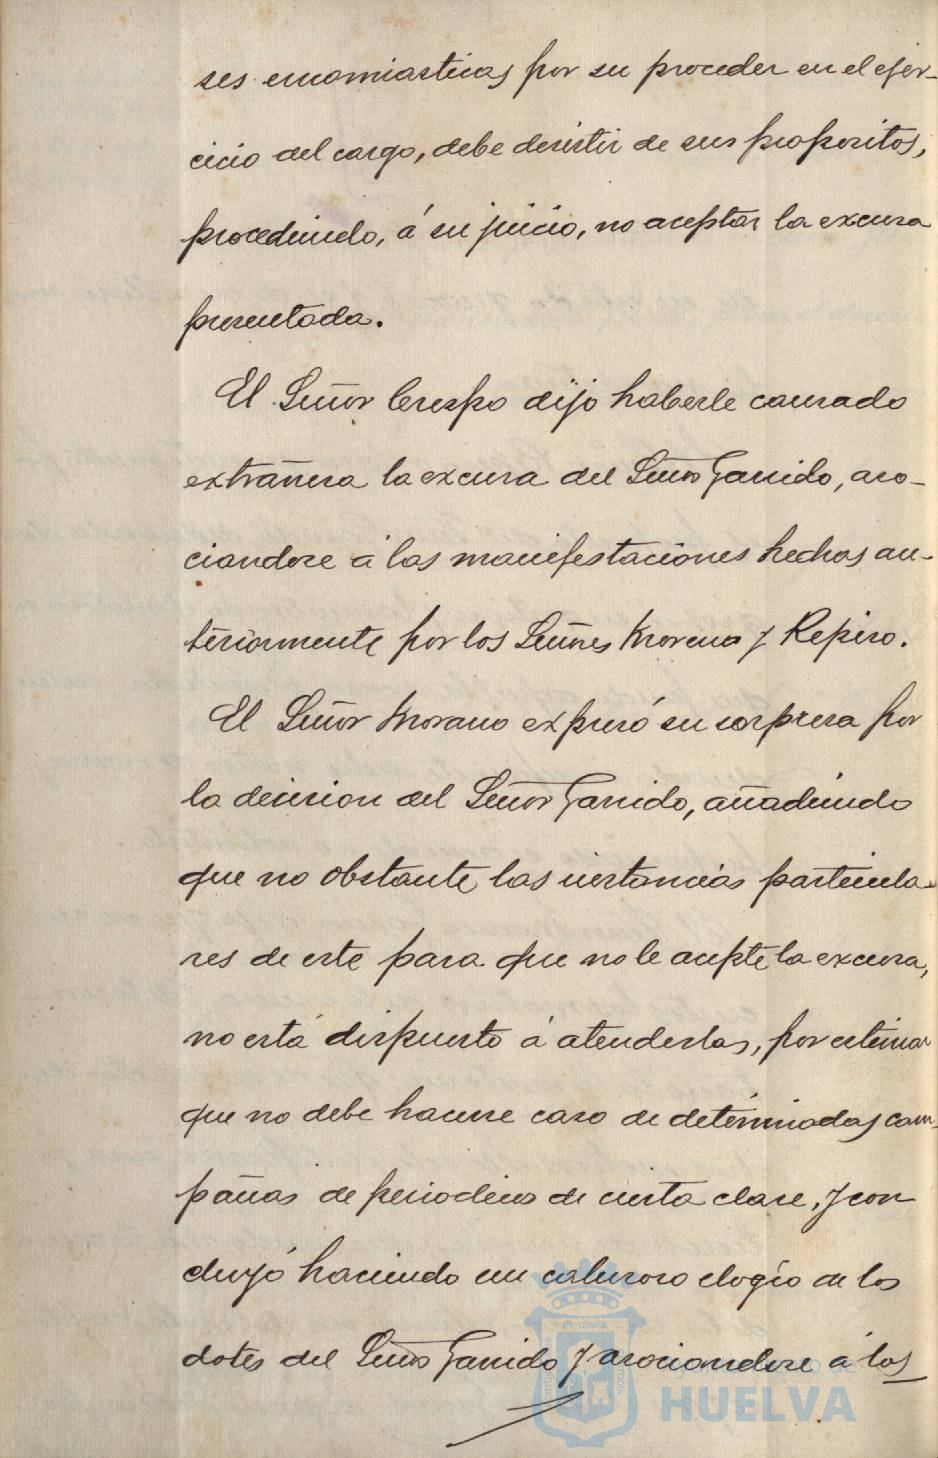 ses encomiasticas por su proceder en el ejer-
cicio del cargo, debe desistir de sus propositos,
procediendo, á su juicio, no aceptar la excusa
presentada.
El Señor Crespo dijo haberle causado
extrañesa la excusa del Señor Garrido, aso-
ciandose á las manifestaciones hechas an-
teriormente por los Señores Moreno y Repiso.
El Señor Morano expresó su sorpresa por
la decision del Señor Garrido, añadiendo
que no obstante las instancias particula-
res de este para que no le acepte la excusa,
no está dispuesto á atenderlas, por estimar
que no debe hacerse caso de determinadas cam-
pañas de periodicos de cierta clase, y con
cluyó haciendo un caluroso elogio de los
dotes del Señor Garrido y asociandose á las
Ayuntamiento de
HUELVA